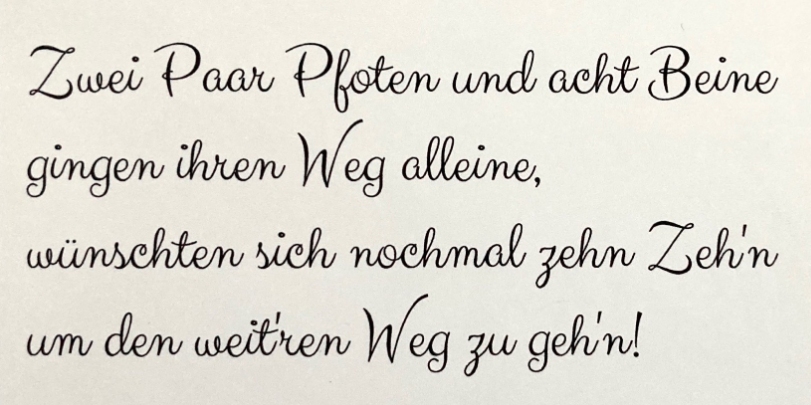 Zwei Paar Pfoten und acht Beine
gingen ihren Weg alleine,
wünschten sich nochmal zehn Zeh'n
um den weit'ren Weg zu geh'n!